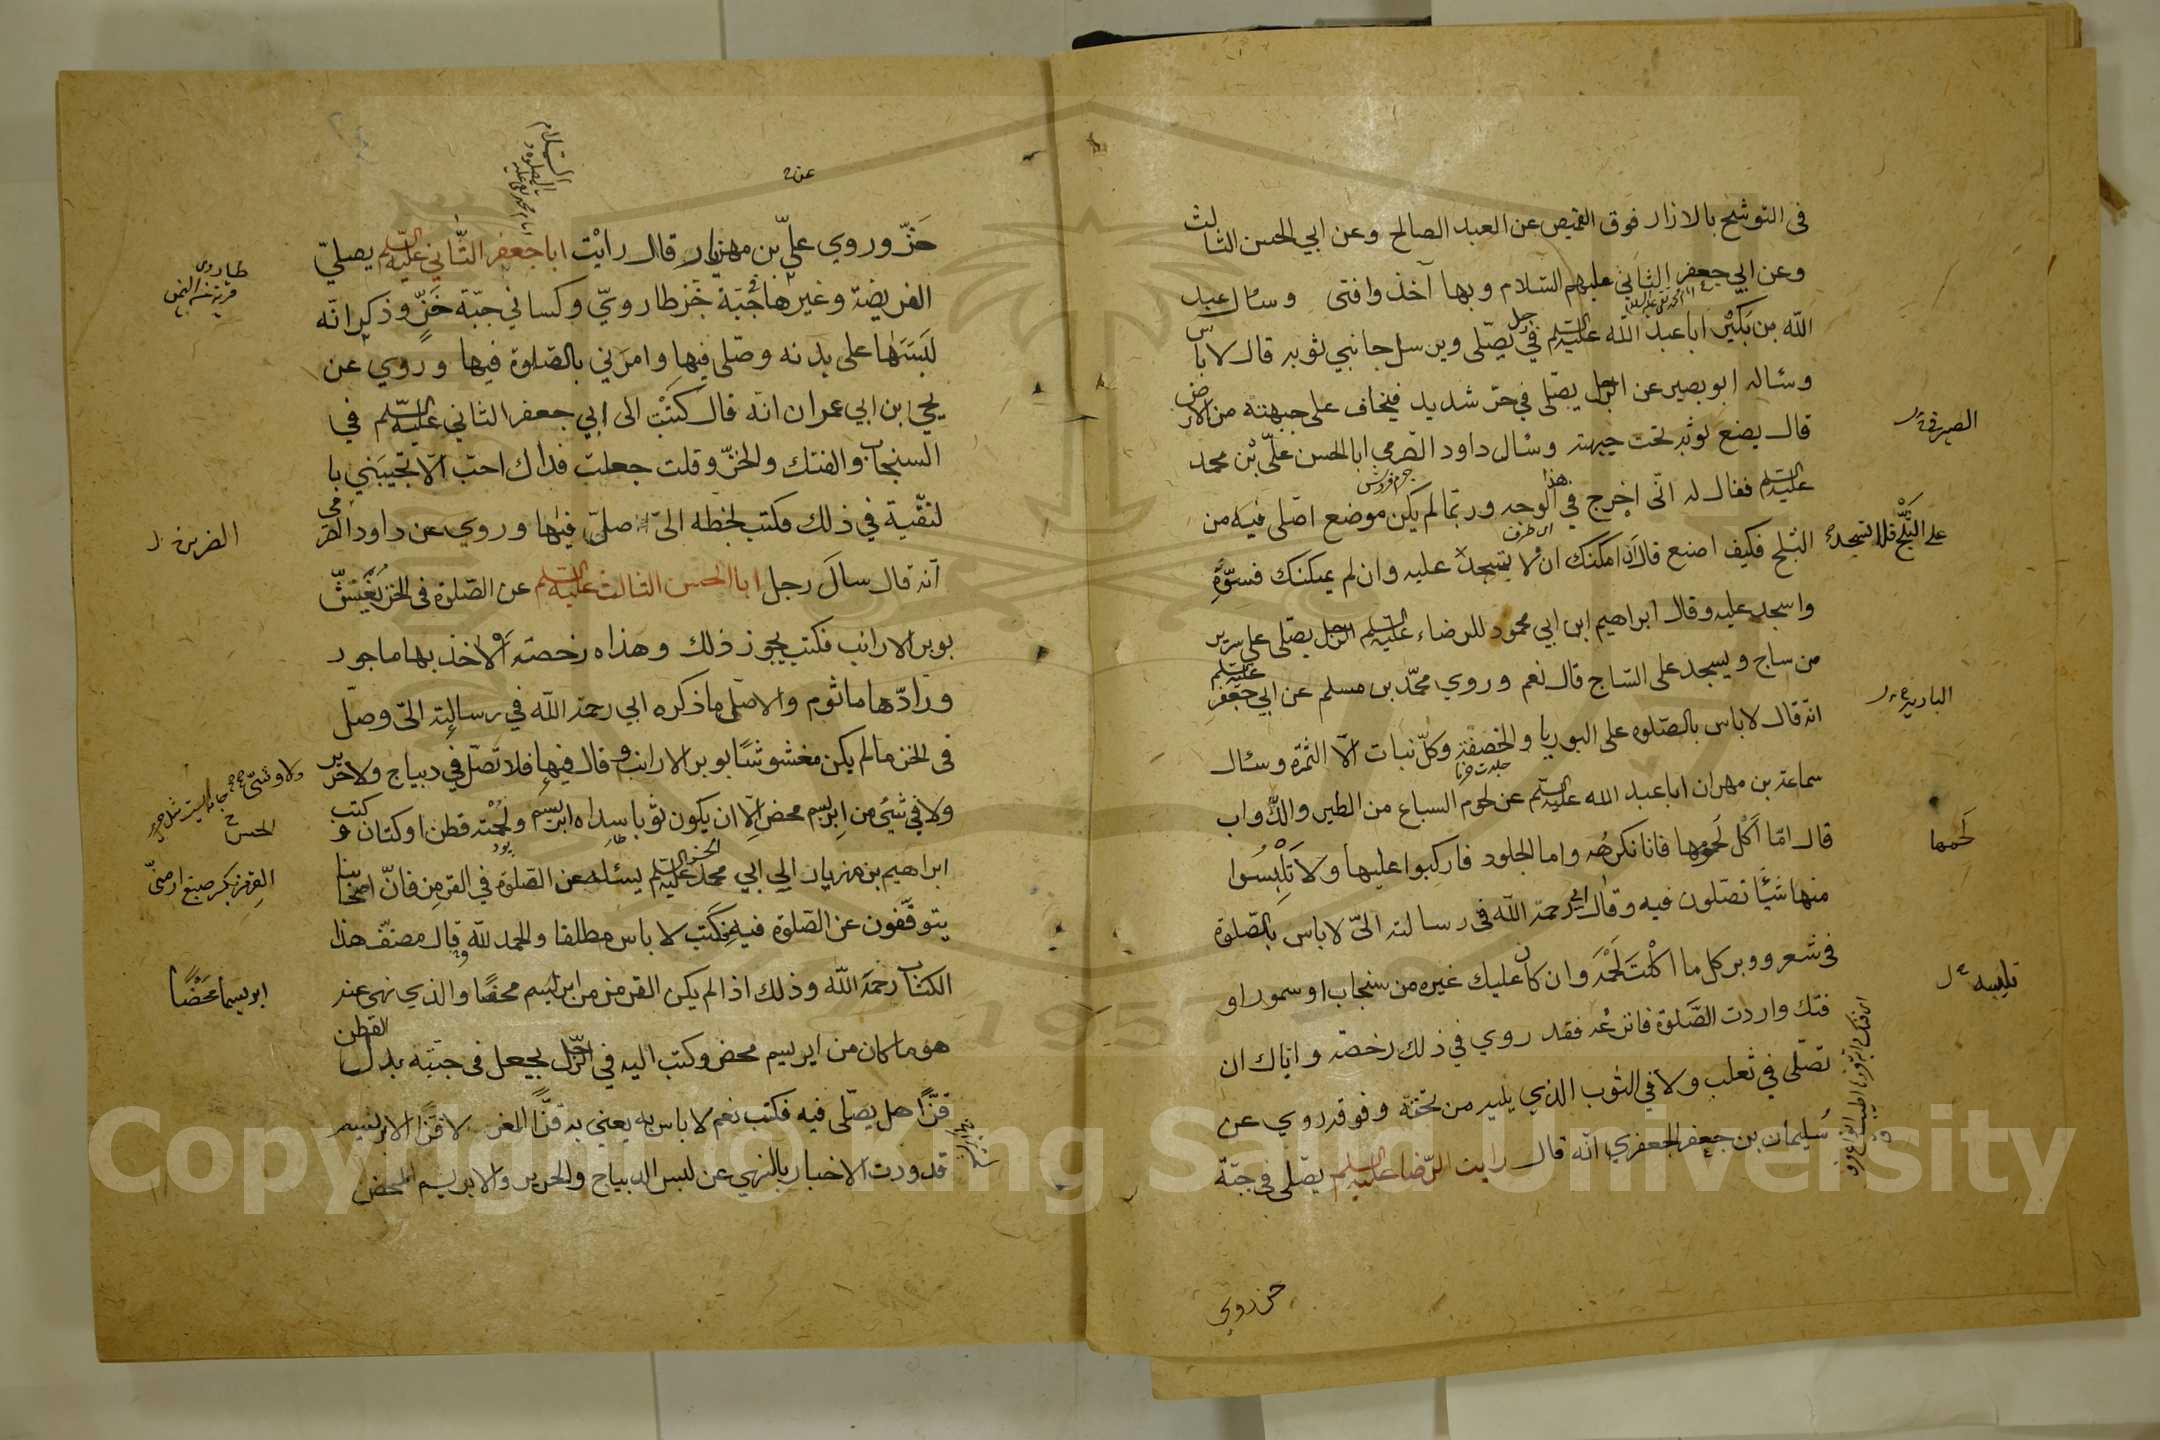 فى التوشح بالازار فوق القميص عن العبد الصالح وعن ابي الحسن الثالث
وعن ابي جعفر الثاني عليهم السلام وبها آخذ وافتى وسئال عبد
الله بن بكير ابا عبد الله عليه السلم في رجل يصلى ويرسل جانبي ثوبه قال لا باس
وسئاله ابو بصير عن الرجل يصلى في حر شديد فيخاف على جبهته من الارض
قال يضع ثوبه تحت جبهته وسئال داود الصرمي ابا الحسن على بن محمد
عليه السلم فقال له انى اخرج في هذا الوجه وربما لم يكن موضع اصلى فيه من
الثلج فكيف اصنع قال ان امكنك ان لا تسجد عليه وان لم يمكنك فسوه
واسجد عليه وقال ابراهيم ابن ابي محمود للرضاء عليه السلم الرجل يصلى على سرير
من ساج ويسجد على الساج قال نعم وروي محمد بن مسلم عن ابي جعفر عليه السلم
انه قال لا باس بالصلوه على البوريا والخصفة وكل نبات الا الثمرة وسئال
سماعة بن مهران ابا عبد الله عليه السلم عن لحوم السباع من الطير والدواب
قال اما اكل لحومها فانا نكرهه واما الجلود فاركبوا عليها ولا تلبسوا
منها شيئا تصلون فيه وقال ابي رحمة الله فى رسالته الى لا باس بالصلوة
فى شعر ووبر كل ما اكلت لحمه وان كان عليك غيره من سنجاب او سمور او
فنك واردت الصلوة فانزعه فقد روي في ذلك رخصة واياك ان
تصلى في ثعلب ولا في الثوب الذي يليه من تحته وفوقه روي عن
سليمان بن جعفر الجعفري انه قال رايت الرضا عليه السلم يصلى فى جبة
خز وروي
الصيرفي
على الثلج فلا تسجد
البادية
لحمها
تلبسه
عن
خز وروي على بن مهزيار قال رايت ابا جعفر الثاني عليه السلم يصلي
الفريضة وغيرها في جبة خز طاروي وكساني جبة خز وذكر انه
لبسها على بدنه وصلى فيها وامرني بالصلوة فيها وروي عن
يحيى ابن ابي عمران انه قال كتبت الى ابي جعفر الثاني عليه السلم في
السنجاب والفنك والخز وقلت جعلت فداك احب الا تجيبني با
لتقية في ذلك فكتب بخطه الى صلى فيها وروي عن داود الصرمي
انه قال سال رجل ابا الحسن الثالث عليه السلم عن الصلوة فى الخز يغش
بوبر الارانب فكتب يجوز ذلك وهذه رخصة الاخذ بها ماجور
ورادها ماثوم والاصل ما ذكره ابي رحمة الله في رسالته الى وصل
فى الخز ما لم يكن مغشوشا بوبر الارانب وقال فيها فلا تصل في ديباج ولا حرير
ولا في شئ من ابريسم محض الا ان يكون ثوبا سداه ابريسم ولحمته قطن او كتان وكتب
ابراهيم بن مهزيار الى ابي محمد عليه السلم يسئله عن الصلوة في القرمز فان اصحابنا
يتوقفون عن الصلوة فيه فكتب لا باس مطلقا والحمد لله قال مصنف هذا
الكتاب رحمة الله وذلك اذا لم يكن القرمز من ابريسم محض والذي نهي عنه
هو ما كان من ابريسم محض وكتب اليه في الرجل يجعل فى جبته بدل القطن
قزا هل يصلى فيه فكتب نعم لا باس به يعني به قز المعز لا قز الابريسم
قد وردت الاخبار بالنهي عن لبس الديباج والحرير والابريسم المحض
طاروي
ولا وشي
الحسن
ابريسما محضا